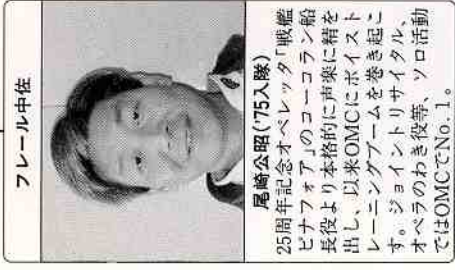 フレール中佐
尾崎公昭('75入隊)
25周年記念オペレッタ「戦艦
ピナフォア」のコーコラン船
長役より本格的に声楽に精を
出し、以来OMCにボイスト
レーニングブームを巻き起こ
す。ジョイントリサイタル、
オペラのわき役等、ソロ活動
ではOMCでNo.1。